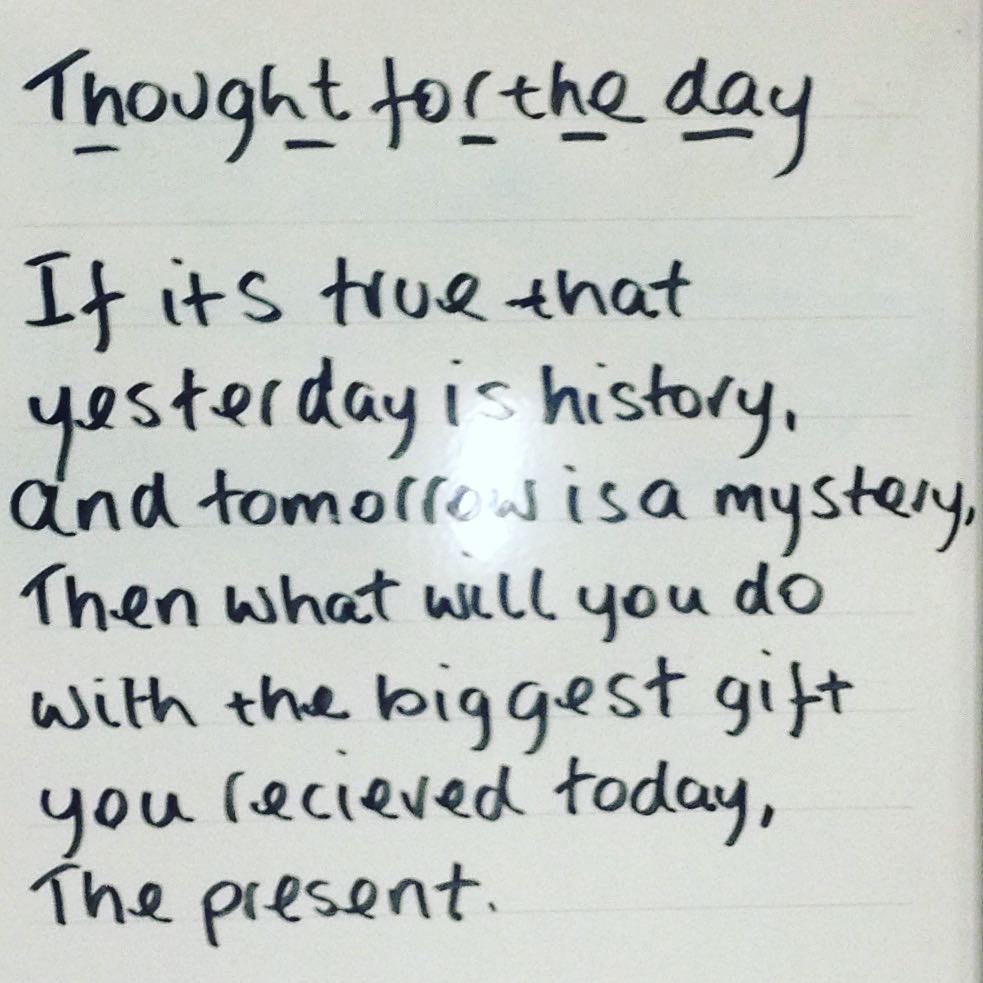 Thought for the day
If its true that
yesterday is history,
and tomorrow is a mystery,
Then what will you do
with the biggest gift
you recieved today,
The present.